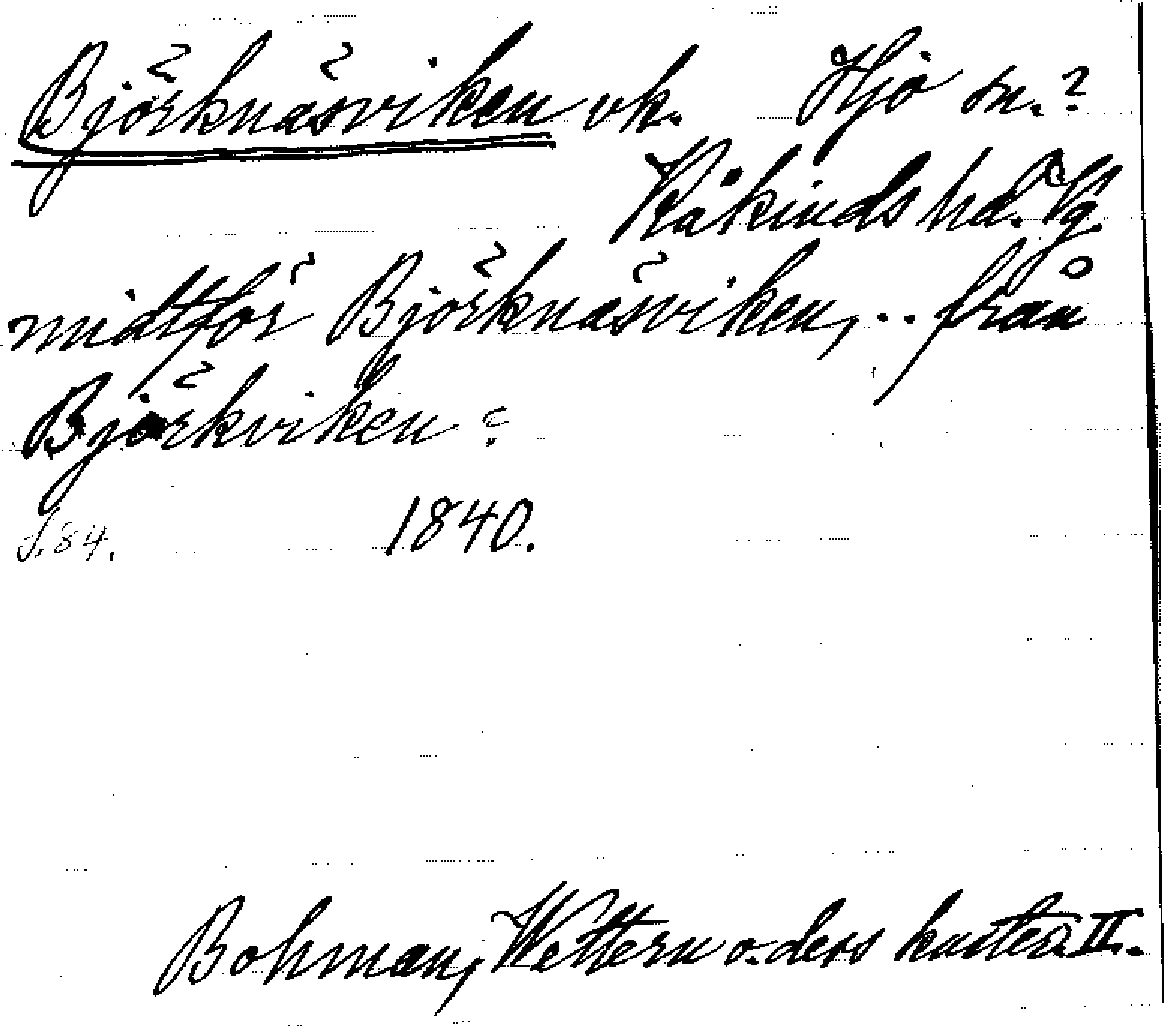 Björknäsviken vk. Hjo sn.?
Kåkinds hd. Vg.
midtför Björknäsviken, .. från
Björkviken :
S. 84. 1840.
Bohman, Wettern o. dess kuster II.